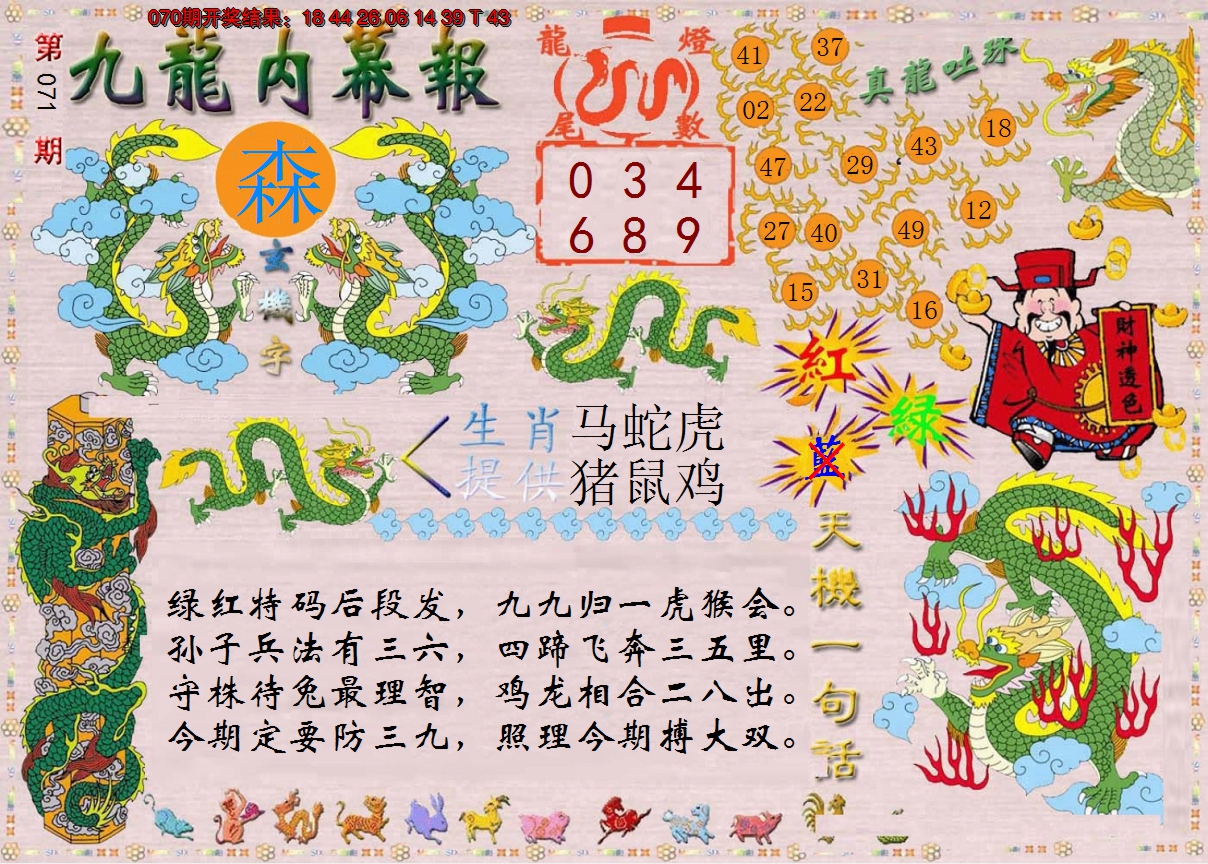 070期开奖结果：18 44 26 06 14 39 T 43
第071期
九龍内幕報
森
玄機字
龍燈尾數
0 3 4
6 8 9
真龍吐珠
41 37
02 22
47 29 43 18
27 40 49 12
15 31 16
財神透色
紅
绿
藍
生肖提供
马蛇虎
猪鼠鸡
天機一句話
绿红特码后段发，九九归一虎猴会。
孙子兵法有三六，四蹄飞奔三五里。
守株待兔最理智，鸡龙相合二八出。
今期定要防三九，照理今期搏大双。